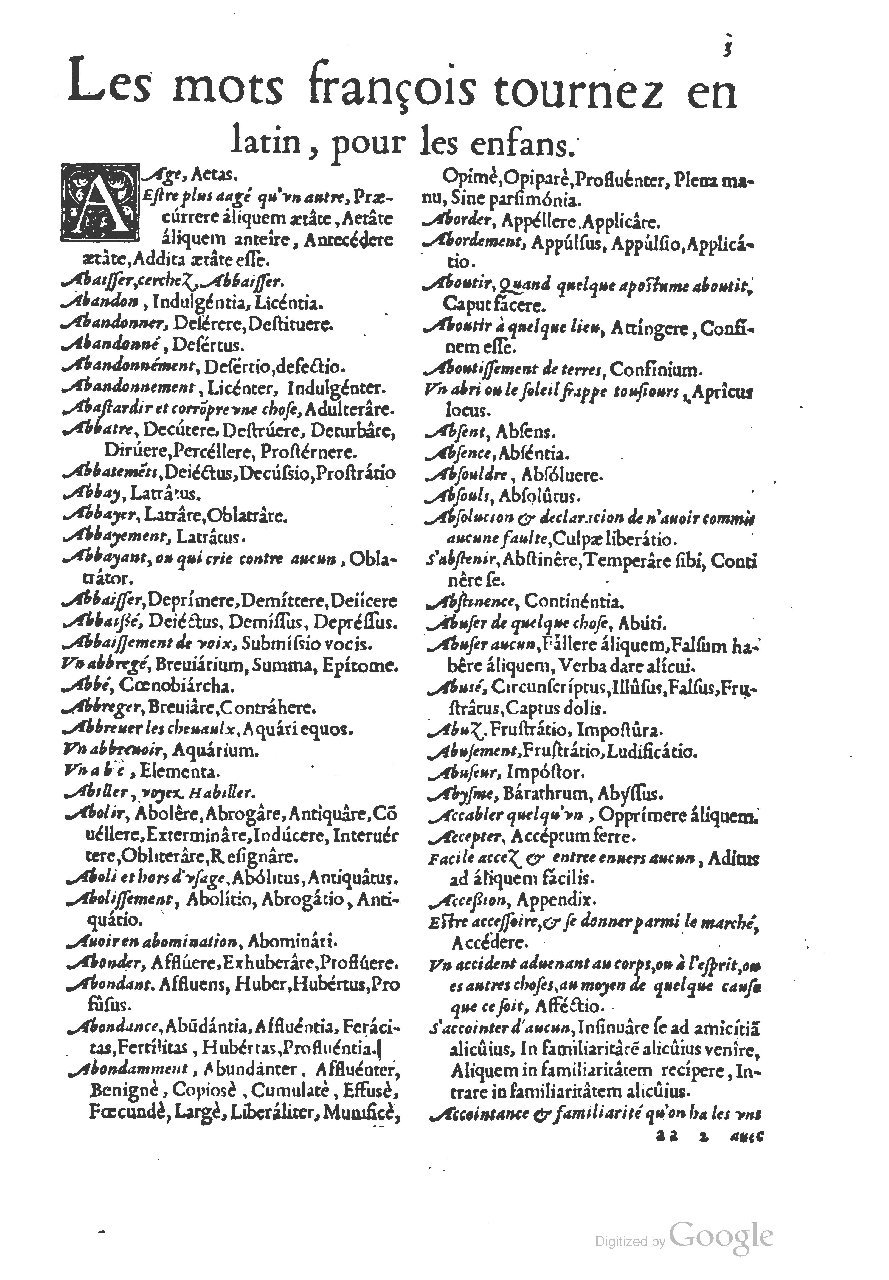 3
Les mots françois tournez en
latin, pour les enfans.
Age, Aetas.
Estre plus aagé qu'vn autre, Præ-
cúrrere áliquem ætâte, Aetâte
áliquem anteîre, Antecédere
ætâte, Addita ætâte eſſe.
Abaiſſer, cerchez, Abbaiſſer.
Abandon, Indulgéntia, Licéntia.
Abandonner, Deſérere, Deſtituere.
Abandonné, Deſértus.
Abandonnément, Deſértio, defectio.
Abandonnement, Licénter, Indulgénter.
Abaſtardir et corrõpre vne choſe, Adulterâre.
Abbatre, Decútere, Deſtrúere, Deturbâre,
Dirúere, Percéllere, Proſtérnere.
Abbatemẽts, Deiéctus, Decúſsio, Proſtrátio
Abbay, Latrâtus.
Abbayer, Latrâre, Oblatrâre.
Abbayement, Latrâtus.
Abbayant, ou qui crie contre aucun, Obla-
trâtor.
Abbaiſſer, Deprímere, Demíttere, Deiícere
Abbaiſſé, Deiéctus, Demíſſus, Depréſſus.
Abbaiſſement de voix, Submíſsio vocis.
Vn abbregé, Breuiárium, Summa, Epítome.
Abbé, Cœnobiárcha.
Abbreger, Breuiâre, Contráhere.
Abbreuer les cheuaulx, Aquári equos.
Vn abbreuoir, Aquárium.
Vn a b c, Elementa.
Abiller, voyez Habiller.
Abolir, Abolêre, Abrogâre, Antiquâre, Cõ
uéllere, Exterminâre, Indúcere, Interuér
tere, Obliterâre, Reſignâre.
Aboli et hors d'vſage, Abólitus, Antiquâtus.
Aboliſſement, Abolítio, Abrogátio, Anti-
quátio.
Auoir en abomination, Abominári.
Abonder, Afflúere, Exhuberâre, Proflúere.
Abondant. Affluens, Huber, Hubértus, Pro
fûſus.
Abondance, Abũdántia, Affluéntia, Feráci-
tas, Fertílitas, Hubértas, Profluéntia.
Abondamment, Abundánter, Affluénter,
Benignè, Copiosè, Cumulatè, Effusè,
Fœcundè, Largè, Liberáliter, Munificè,
Opimè, Opiparè, Profluénter, Plena ma-
nu, Sine parſimónia.
Aborder, Appéllere. Applicâre.
Abordement, Appúlſus, Appúlſio, Applicá-
tio.
Aboutir, Quand quelque apoſtume aboutit,
Caput fácere.
Aboutir à quelque lieu, Attíngere, Confi-
nem eſſe.
Aboutiſſement de terres, Confinium.
Vn abri ou le ſoleil frappe touſiours, Apricus
locus.
Abſent, Abſens.
Abſence, Abſéntia.
Abſouldre, Abſóluere.
Abſouls, Abſolûtus.
Abſolucion & declaracion de n'auoir commis
aucune faulte, Culpæ liberátio.
S'abſtenir, Abſtinêre, Temperâre ſibi, Conti
nêre ſe.
Abſtinence, Continéntia.
Abuſer de quelque choſe, Abúti.
Abuſer aucun, Fállere áliquem, Falſum ha-
bêre áliquem, Verba dare alícui.
Abuſé, Circunſcríptus, Illûſus, Falſus, Fru-
ſtrâtus, Captus dolis.
Abuz. Fruſtrátio, Impoſtûra.
Abuſement, Fruſtrátio, Ludificátio.
Abuſeur, Impóſtor.
Abyſme, Bárathrum, Abyſſus.
Accabler quelqu'vn, Opprímere áliquem.
Accepter, Accéptum ferre.
Facile accez & entree enuers aucun, Aditus
ad áliquem fácilis.
Acceſsion, Appendix.
Eſtre acceſſoire, & ſe donner parmi le marché,
Accédere.
Vn accident aduenant au corps, ou à l'eſprit, ou
es autres choſes, au moyen de quelque cauſe
que ce ſoit, Afféctio.
S'accointer d'aucun, Inſinuâre ſe ad amicítiã
alicûius, In familiaritâtẽ alicûius veníre,
Aliquem in familiaritâtem recípere, In-
trare in familiaritâtem alicûius.
Accointance & familiarité qu'on ha les vns
aa 2 auec
Digitized by Google